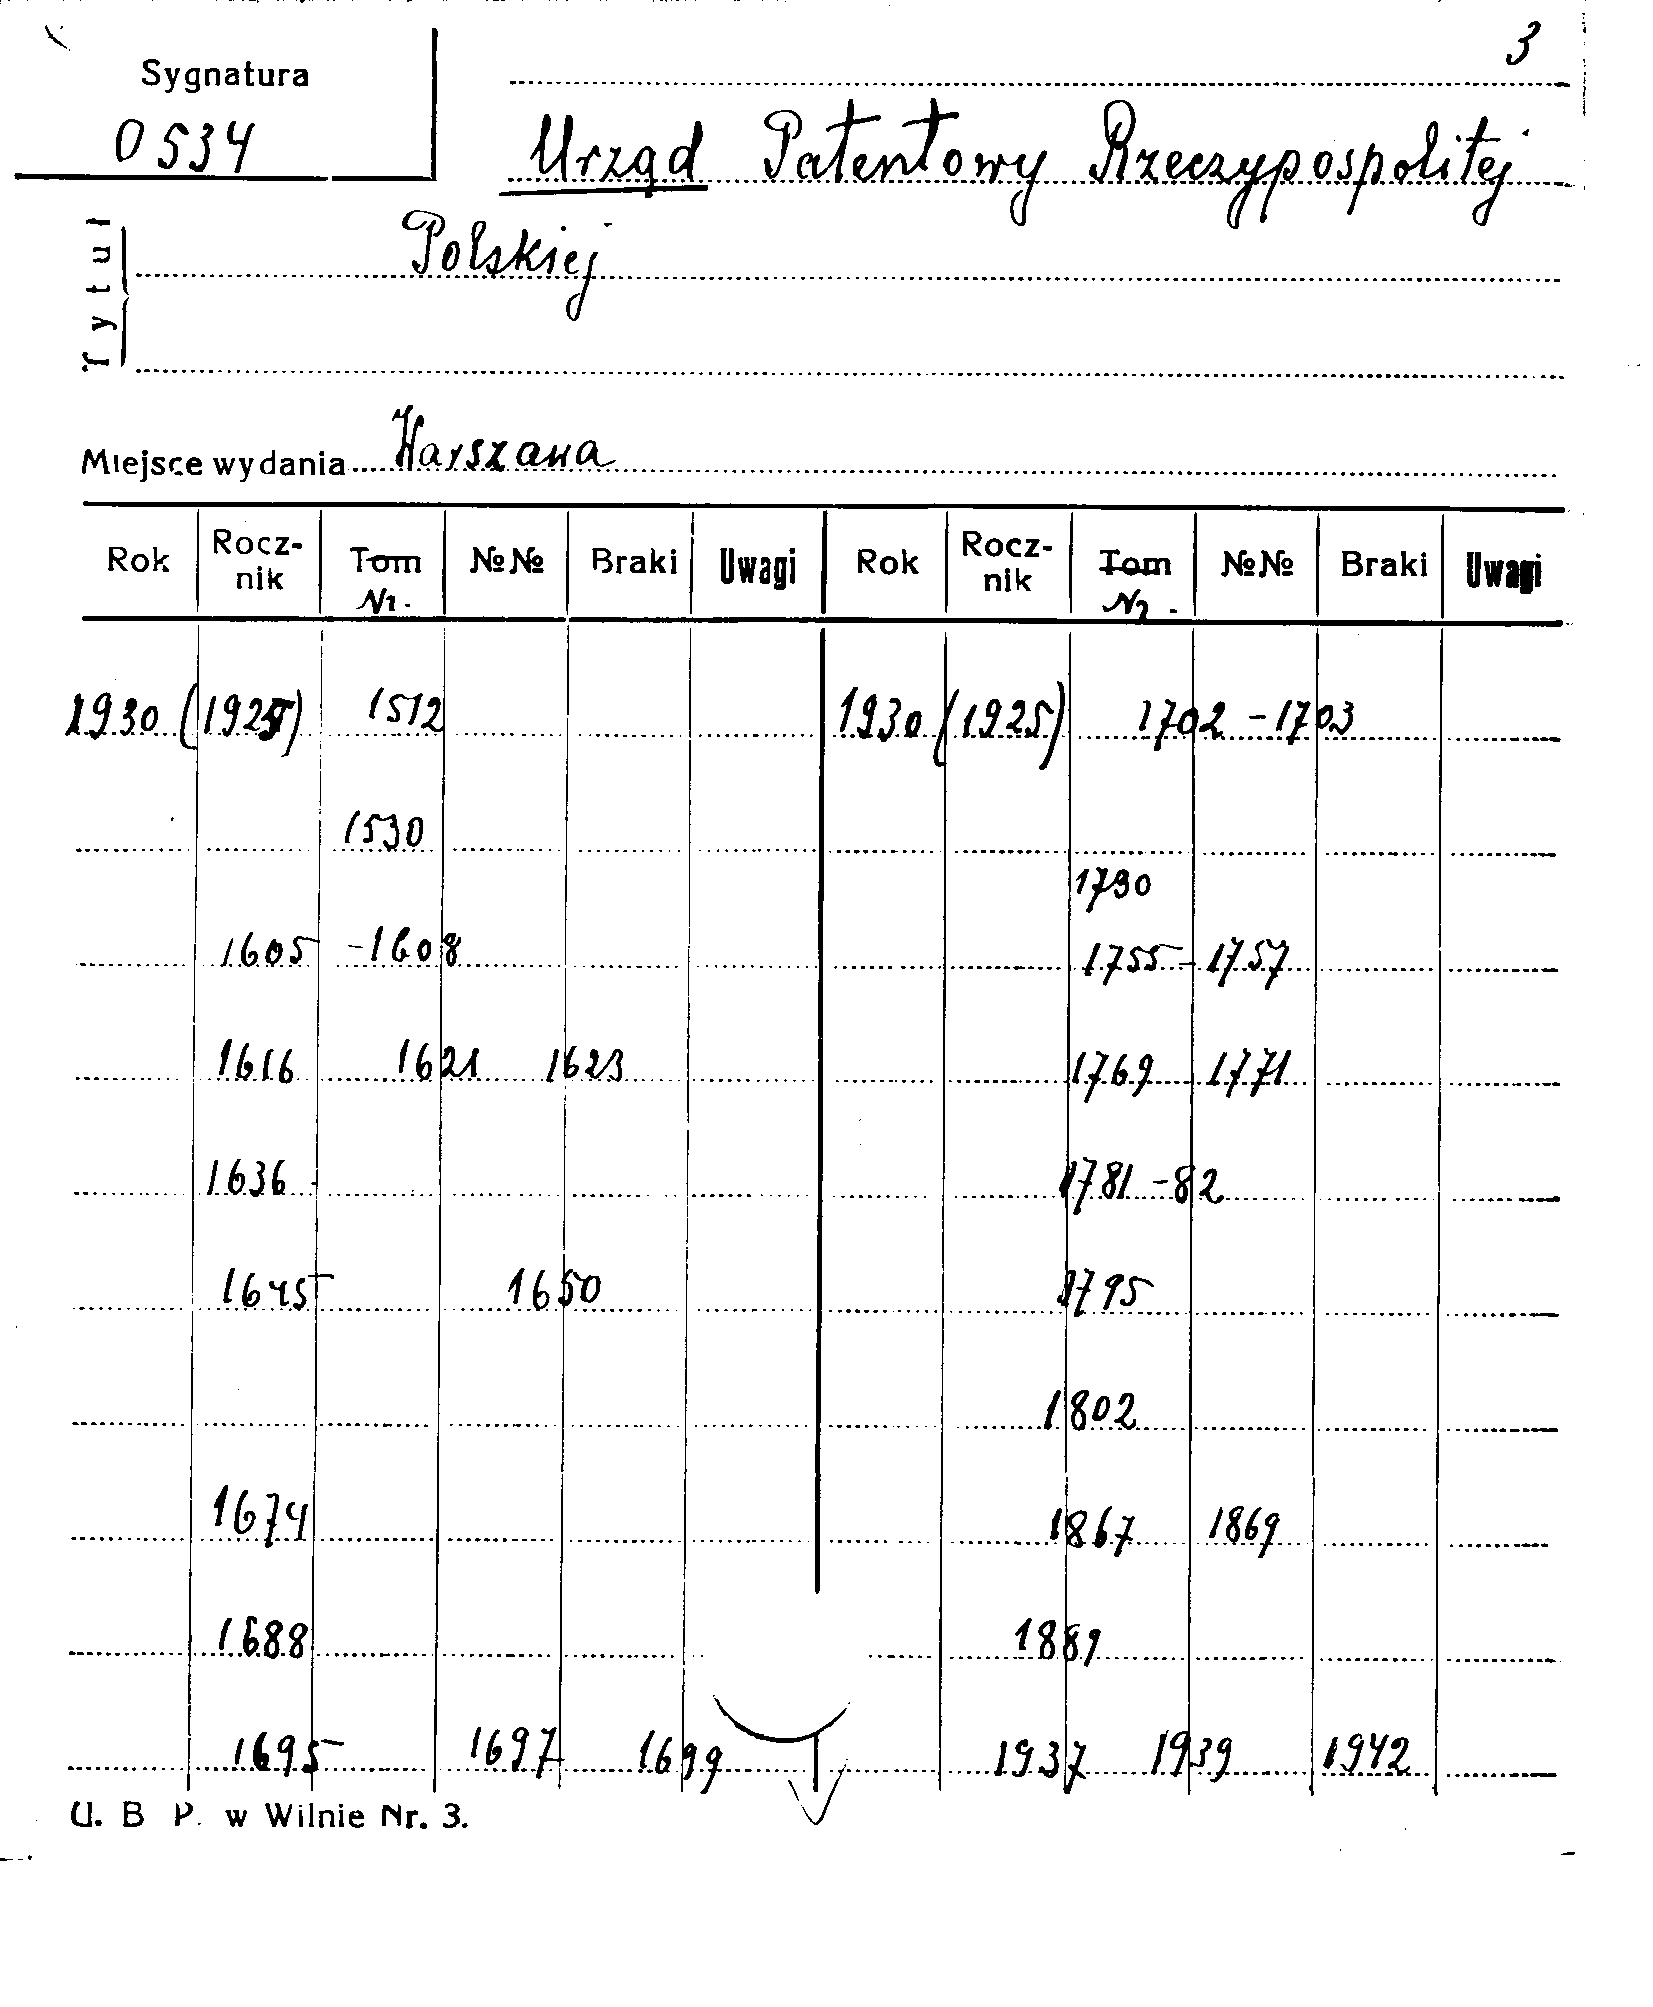 3
Sygnatura
0534
Urząd Patentowy Rzeczypospolitej
Polskiej
Tytuł
Miejsce wydania Warszawa
Rok Rocz-nik Tom Nr. №№ Braki Uwagi Rok Rocz-nik Tom Nr. №№ Braki Uwagi
1930 (1925) 1512 1930 (1925) 1702 - 1703
1530
1730
1605 - 1608 1755 - 1757
1616 1621 1623 1769 1771
1636 1781 - 82
1645 1650 1795
1802
1674 1867 1869
1688 1889
1695 1697 1699 1937 1939 1942
U. B P. w Wilnie Nr. 3.